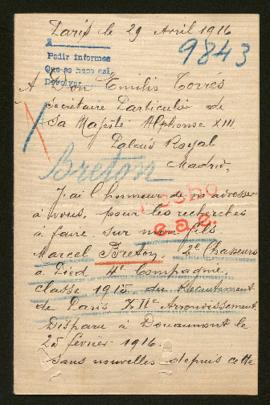 Paris le 29 Avril 1916
9843
A
Pedir informes
Que se haga así.
Devolver
A Don Emilio Torrés
Secrétaire Particulier de
Sa Majesté Alphonse XIII
Palais Royal
Madrid.
Breton
J'ai l'honneur de m'adresser
à vous, pour les recherches
à faire sur mon fils
Marcel Breton 2e Chasseurs
à Pied 4e Compagnie,
classe 1915 du Recrutement
de Paris Arrondissement
Disparu à Douaumont le
25 février 1916.
Sans nouvelles depuis cette